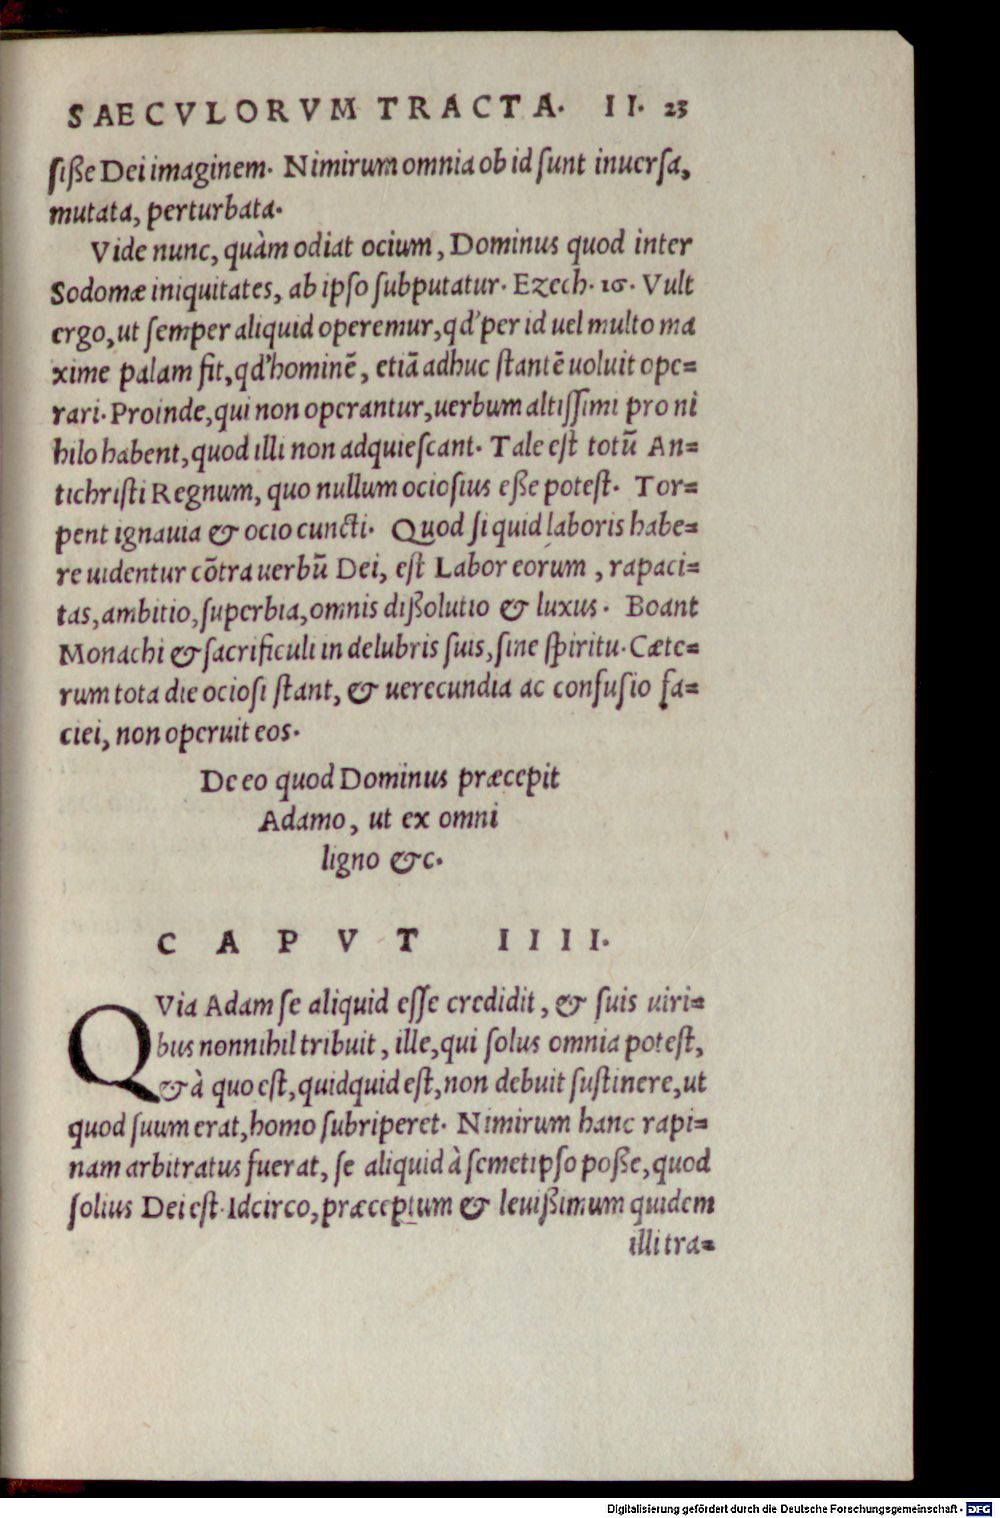 SAECVLORVM TRACTA. II. 23
siße Dei imaginem. Nimirum omnia ob id sunt inuersa,
mutata, perturbata.
Vide nunc, quàm odiat ocium, Dominus quod inter
Sodomæ iniquitates, ab ipso subputatur. Ezech. 16. Vult
ergo, ut semper aliquid operemur, qd' per id uel multo ma
xime palam fit, qd' hominē, etiā adhuc stantē uoluit ope=
rari. Proinde, qui non operantur, uerbum altissimi pro ni
hilo habent, quod illi non adquiescant. Tale est totū An=
tichristi Regnum, quo nullum ociosius eße potest. Tor=
pent ignauia & ocio cuncti. Quod si quid laboris habe=
re uidentur cōtra uerbū Dei, est Labor eorum, rapaci=
tas, ambitio, superbia, omnis dißolutio & luxus. Boant
Monachi & sacrificuli in delubris suis, sine spiritu. Cæte=
rum tota die ociosi stant, & uerecundia ac confusio fa=
ciei, non operuit eos.
De eo quod Dominus præcepit
Adamo, ut ex omni
ligno &c.
CAPVT IIII.
QVia Adam se aliquid esse credidit, & suis uiri=
bus nonnihil tribuit, ille, qui solus omnia potest,
& à quo est, quidquid est, non debuit sustinere, ut
quod suum erat, homo subriperet. Nimirum hanc rapi=
nam arbitratus fuerat, se aliquid à semetipso poße, quod
solius Dei est. Idcirco, præceptum & leuißimum quidem
illi tra=
Digitalisierung gefördert durch die Deutsche Forschungsgemeinschaft - DFG